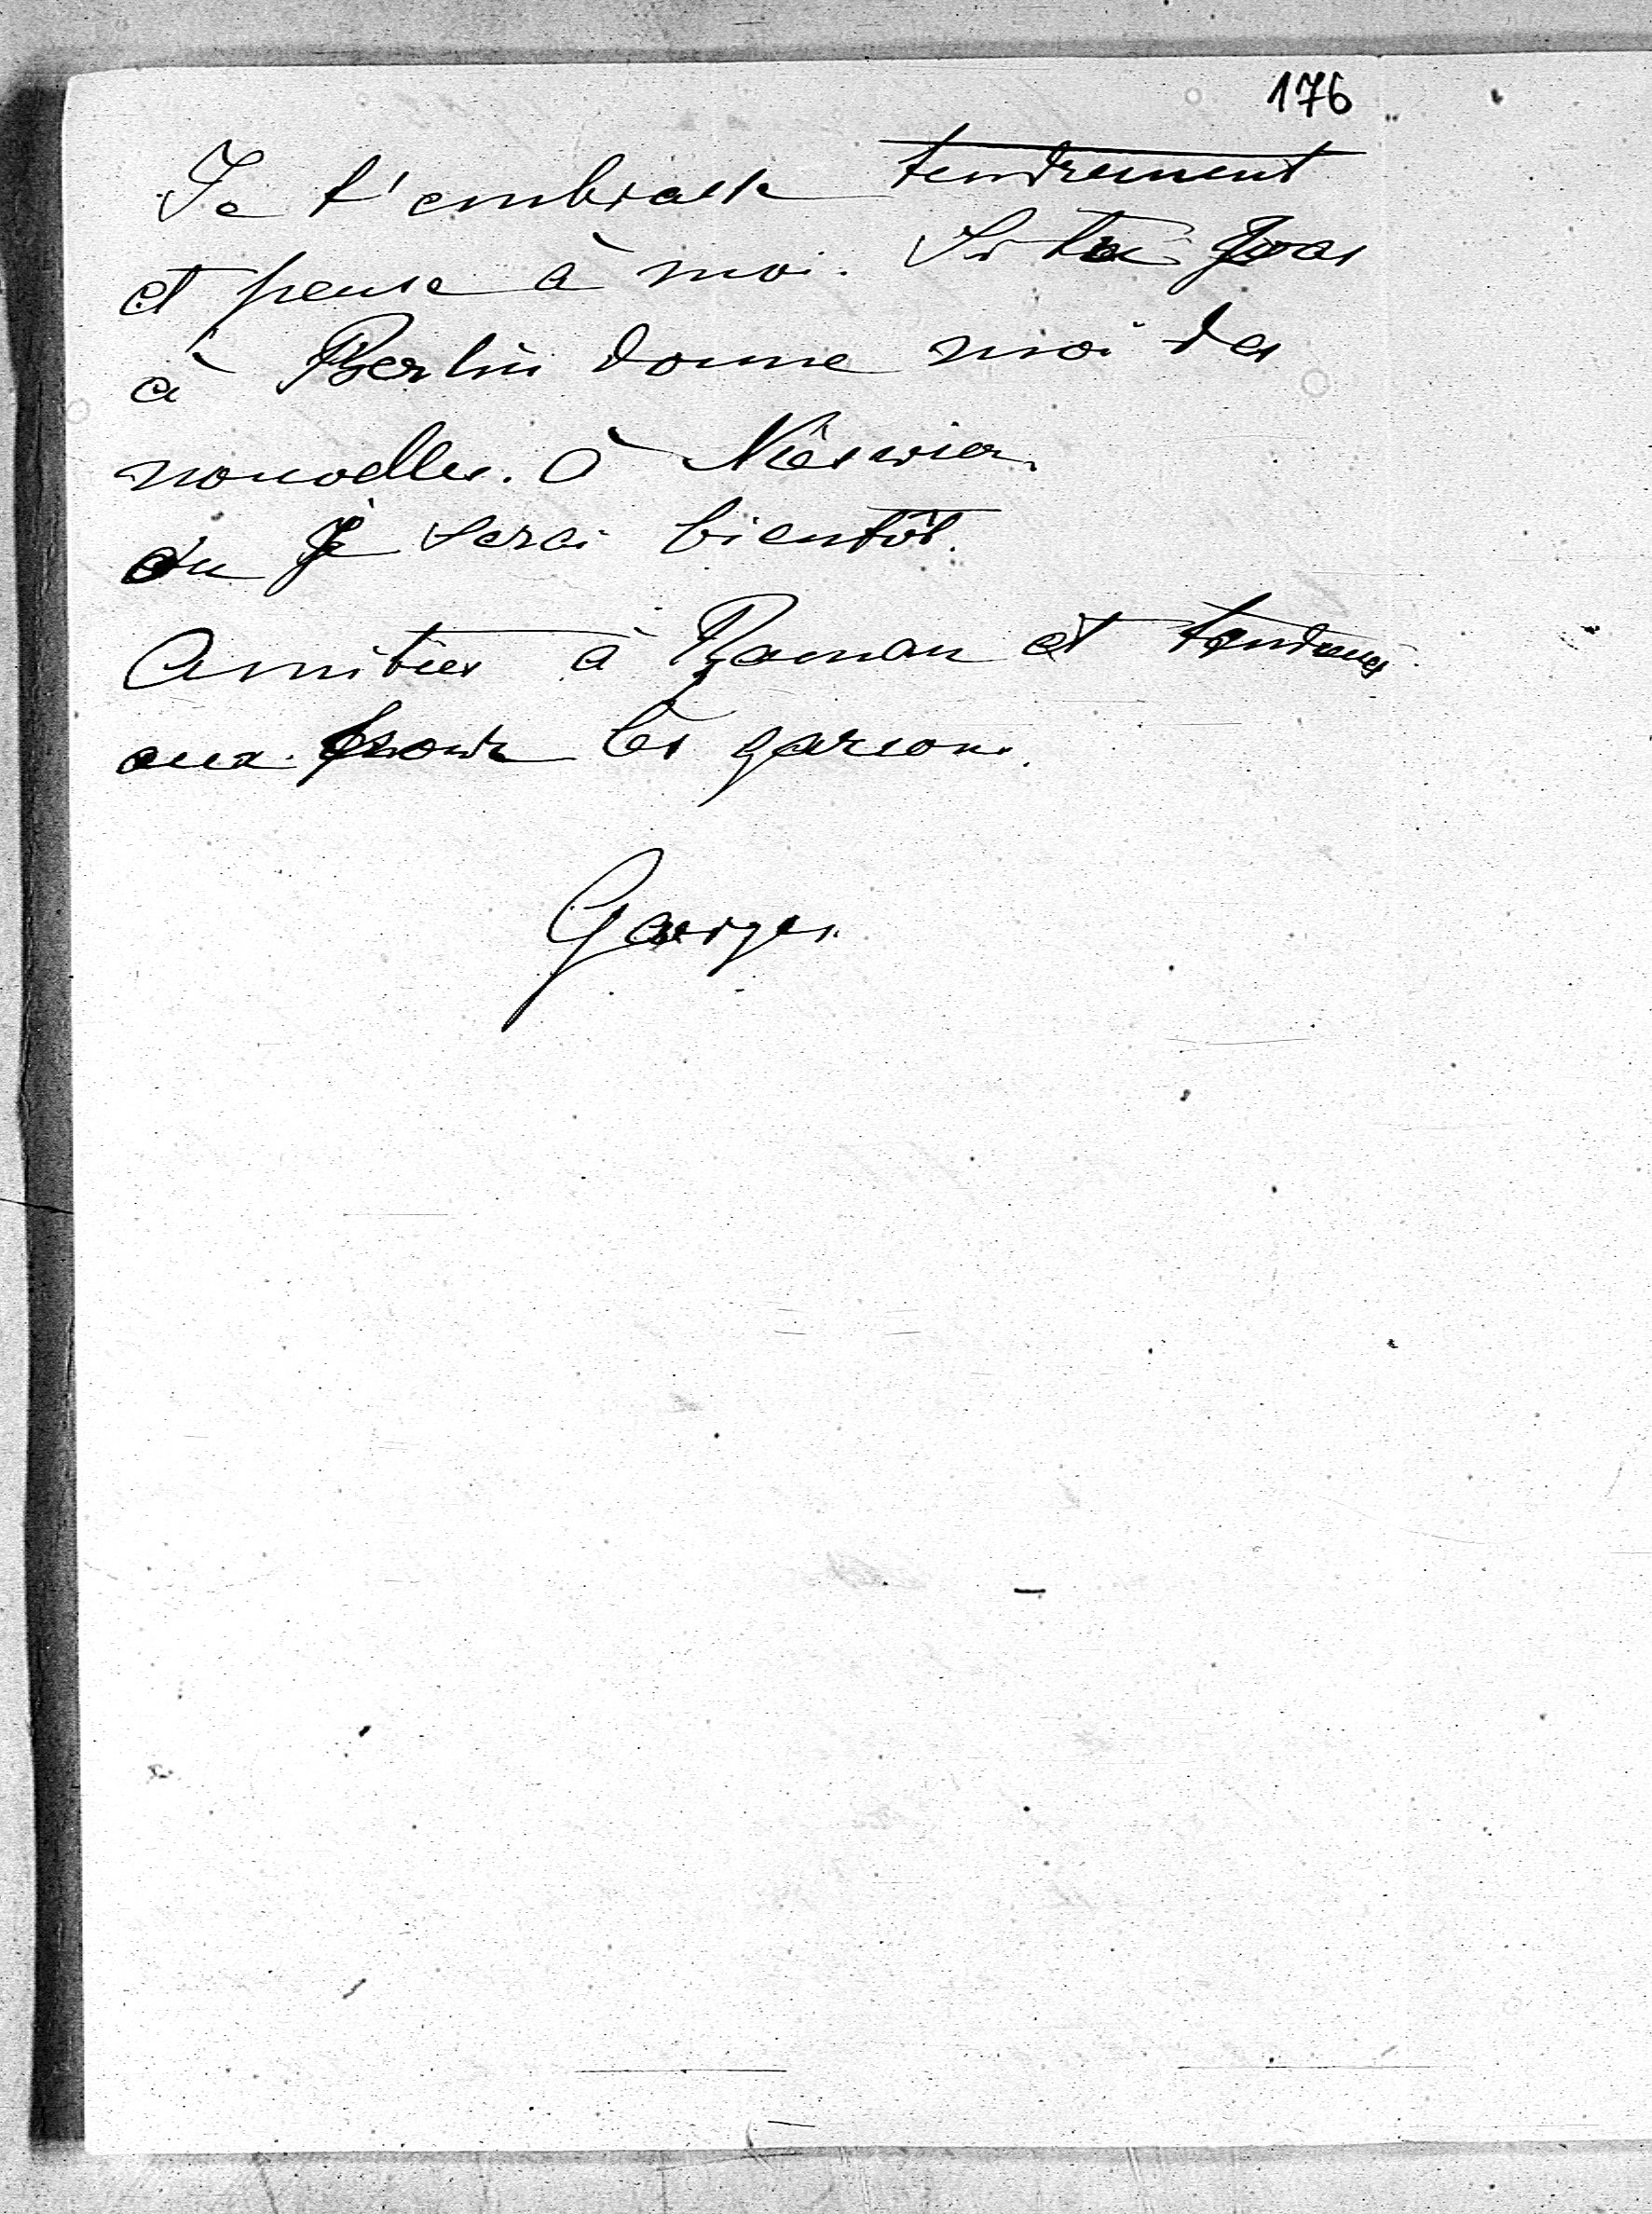 176
Je t'embrasse tendrement
et pense à moi. Si tu vas
à Berlin donne moi des
nouvelles. à Nieswiez
ou Je serai bientôt.
Amities à Roman et tendresses
aux les garcons.
Georges.